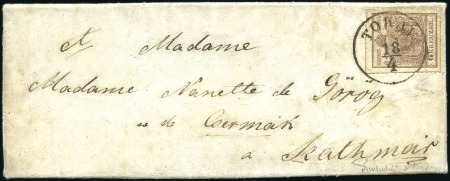 A Madame
Madame Nanette de Görög
de Cermak
à Szathmár
TORJ
18
4